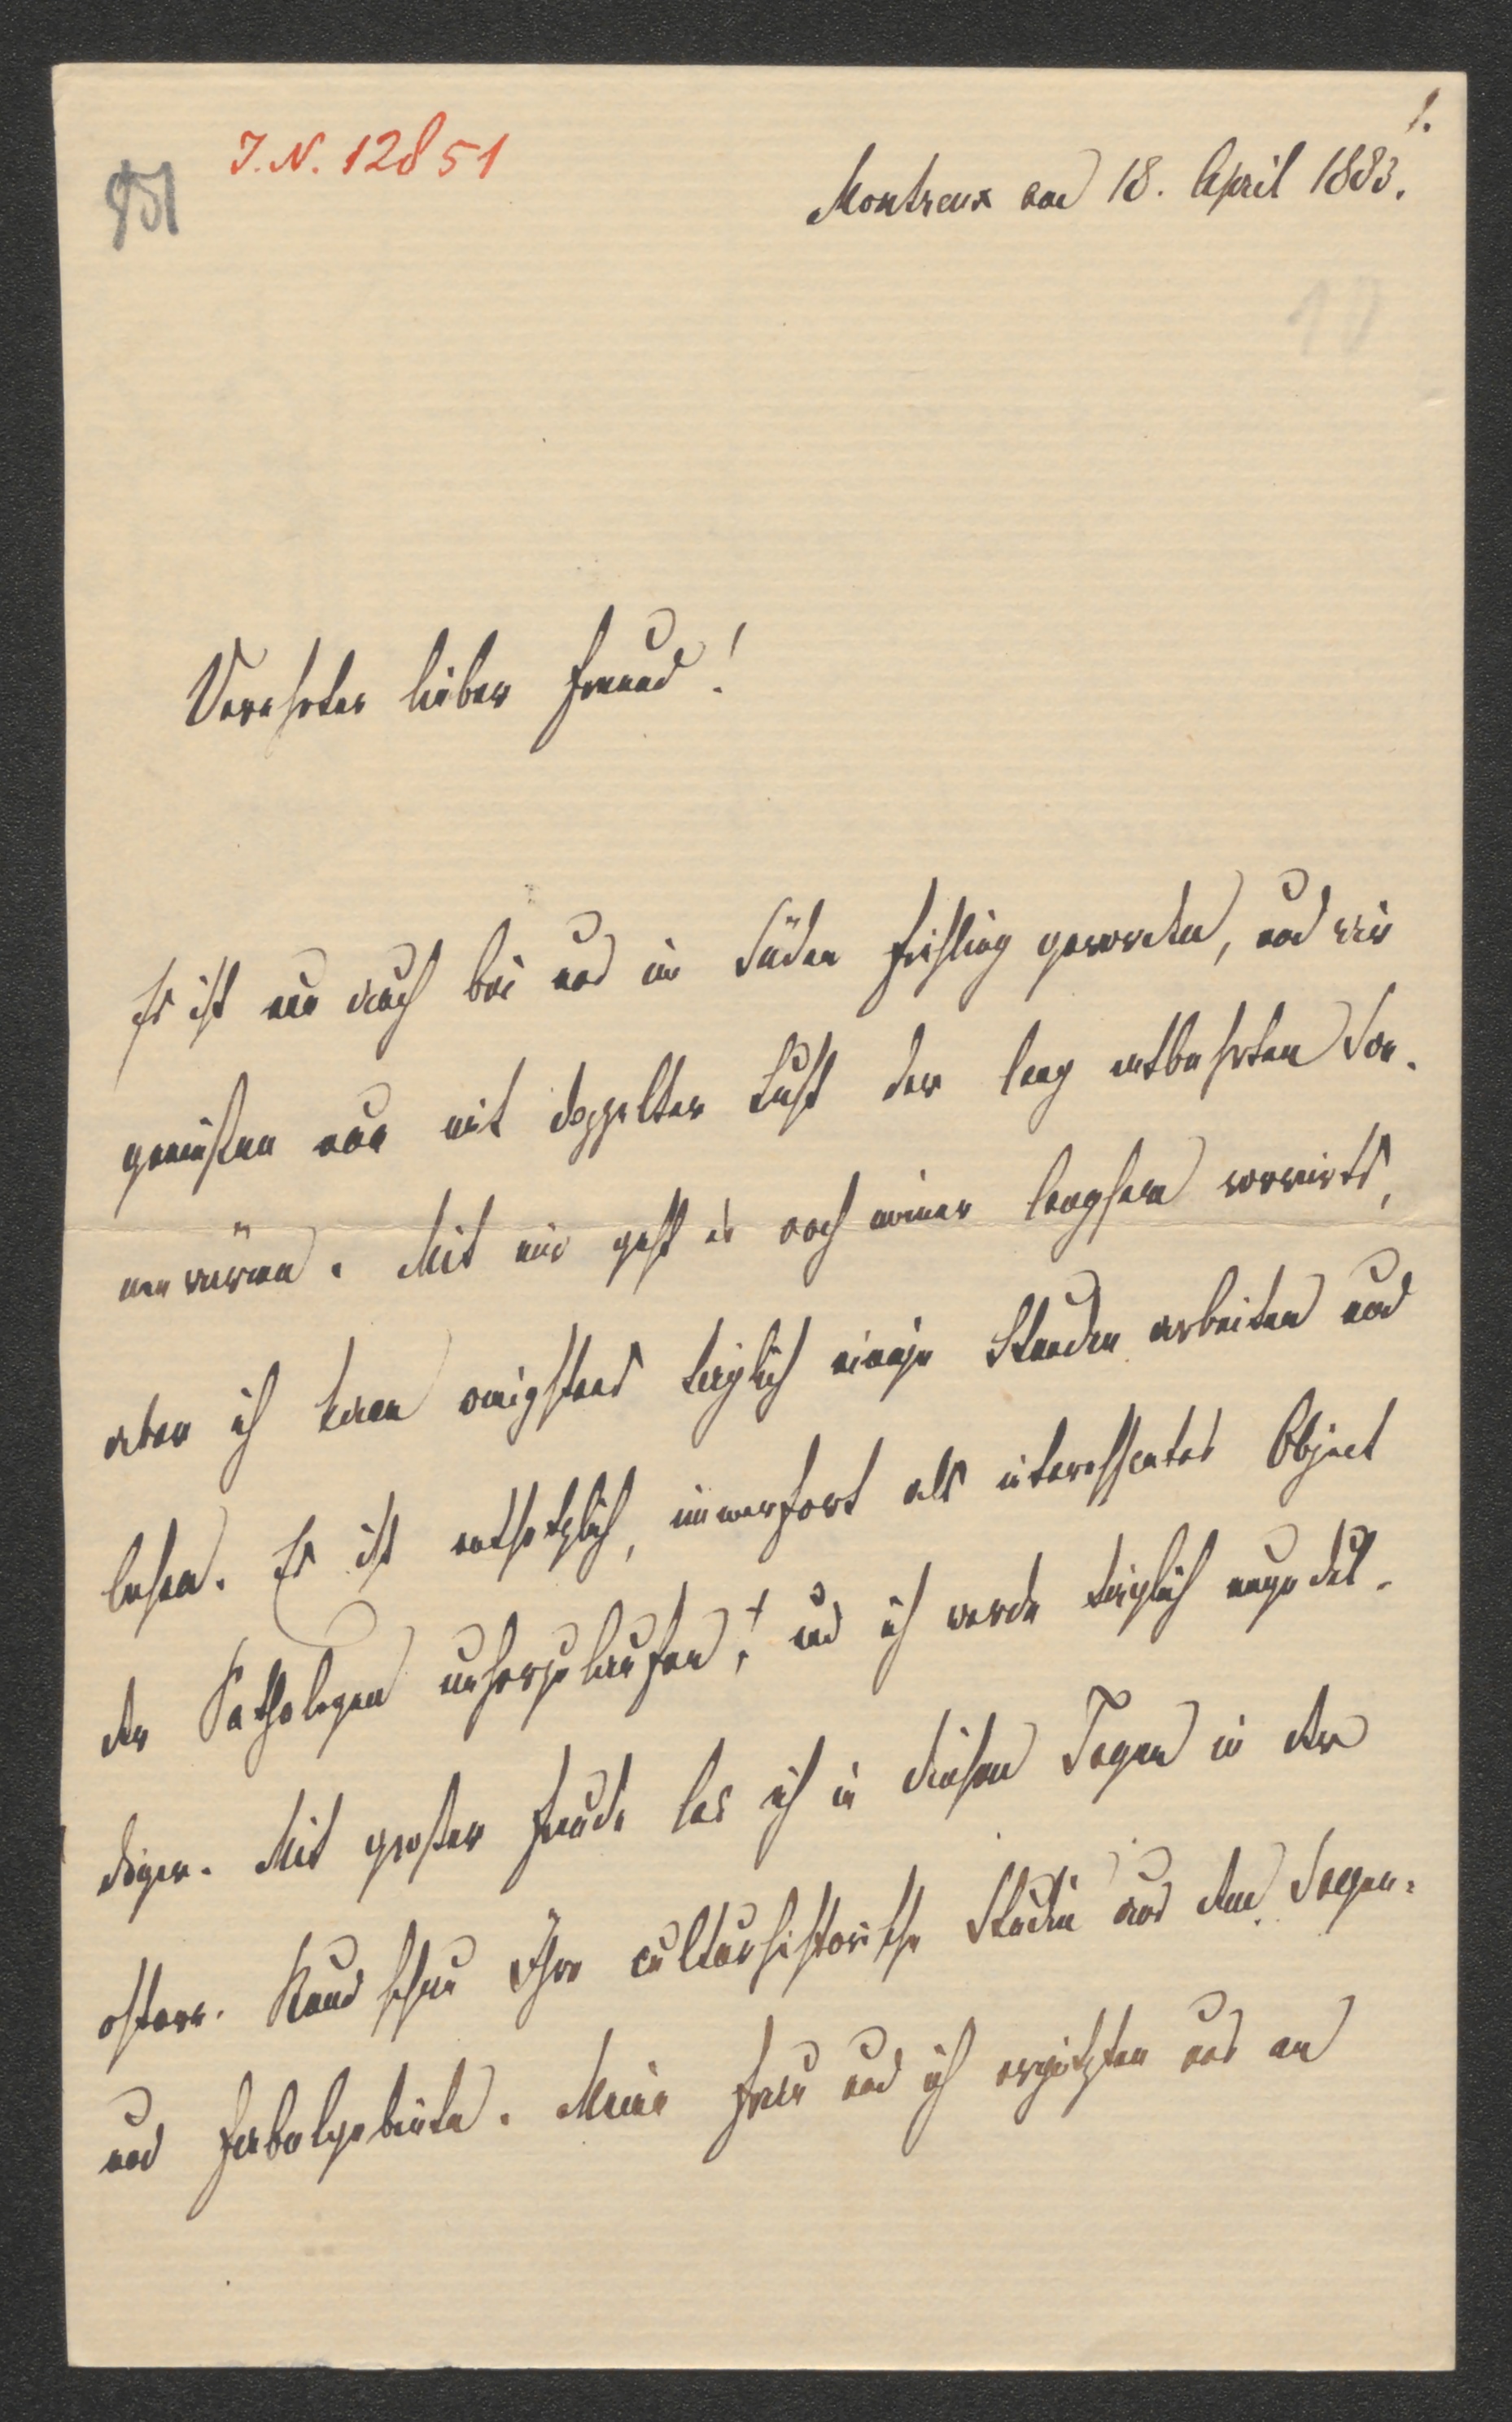 1.
I. N. 12851
851
Montreux am 18. April 1883.
10
Verehrter lieber Freund!
Es ist nun auch bei uns im Süden Frühling geworden, und wir
genießen nun mit doppelter Lust der lang entbehrten Son-
nenwärme. Mit mir geht es noch immer langsam vorwärts,
aber ich kann wenigstens täglich einige Stunden arbeiten und
lesen. Es ist entsetzlich, immerfort als interessantes Object
der Pathologen umherzulaufen, und ich werde täglich ungedul-
diger. Mit großer Freude las ich in diesen Tagen in der
österr. Rundschau Ihre culturhistorische Studie aus dem Sagen-
und Fabelgebiete. Meine Frau und ich ergötzten uns an